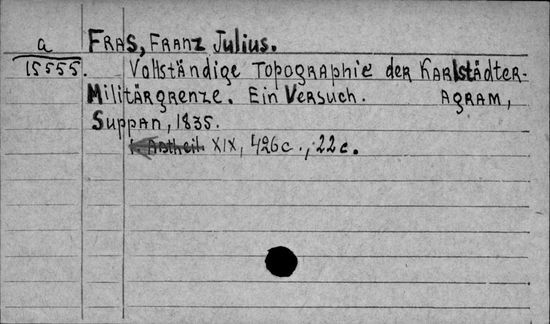 a FRAS, FRANZ Julius.
15555. Vollständige Topographie der Karlstädter-
Militärgrenze. Ein Versuch. AGRAM,
Suppan, 1835.
1. Abtheil. XIX, 426c., 22c.